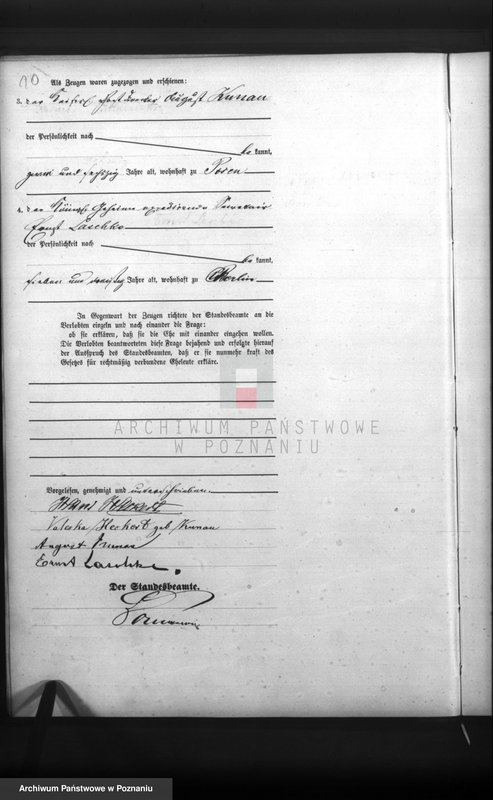 90
Als Zeugen waren zugezogen und erschienen:
3. der August Kunau
der Persönlichkeit nach
be kannt,
zwei und sechzig Jahre alt, wohnhaft zu Posen
4. der Königl. Geheime expedirende Secretair
Ernst Laschke
der Persönlichkeit nach
be kannt,
sieben und dreißig Jahre alt, wohnhaft zu Berlin
In Gegenwart der Zeugen richtete der Standesbeamte an die
Verlobten einzeln und nach einander die Frage:
ob sie erklären, daß sie die Ehe mit einander eingehen wollen.
Die Verlobten beantworteten diese Frage bejahend und erfolgte hierauf
der Ausspruch des Standesbeamten, daß er sie nunmehr kraft des
Gesetzes für rechtmäßig verbundene Eheleute erkläre.
ARCHIWUM PAŃSTWOWE
W POZNANIU
Vorgelesen, genehmigt und unterschrieben.
Valeska Herkert geb Kunau
August Kunau
Ernst Laschke.
Der Standesbeamte.
Archiwum Państwowe w Poznaniu